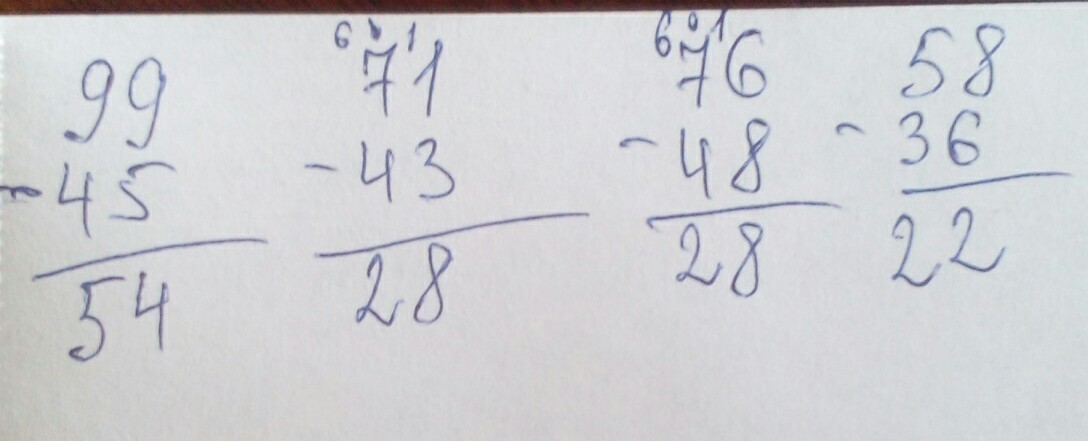 6 1 6 1
99 71 76 58
- 45 - 43 - 48 - 36
54 28 28 22